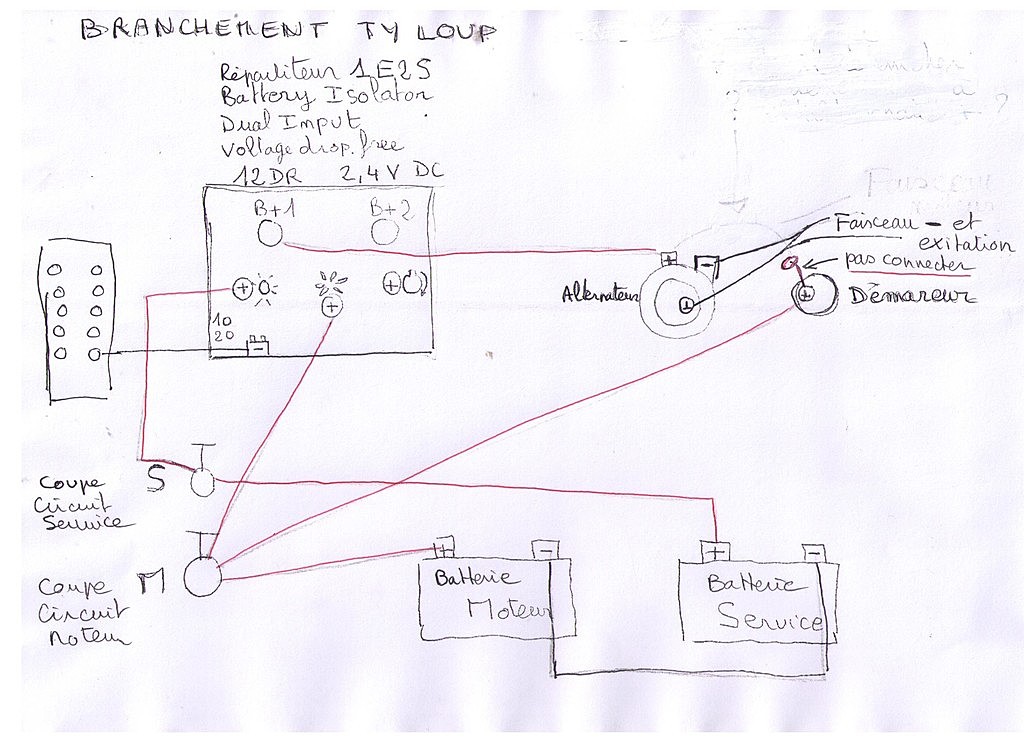 BRANCHEMENT TY LOUP
Répartiteur 1E2S
Battery Isolator
Dual Imput
Voltage drop. free
12DR 2,4V DC
B+1 B+2
+ + +
10
20
-
+ -
Alternateur
+
Faisceau - et
exitation
pas connecter
+
Démareur
Faisceau
S
Coupe
Circuit
Service
M
Coupe
Circuit
Moteur
+ -
Batterie
Moteur
+ -
Batterie
Service